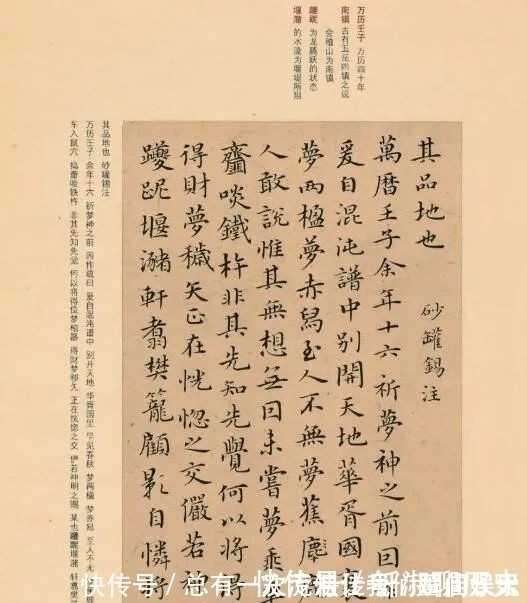 万历壬子 万历四十年
南镇 古有五岳四镇之说
会稽山为南镇
躨跜 为龙腾跃的状态
堰潴 的水流为堰堤所阻
其品地也 砂罐錫注
萬曆壬子余年十六祈夢神之前因
爰自混沌譜中別開天地華胥國
夢兩楹夢赤舃至人不無夢蕉
人敢說惟其無想無因未嘗夢乘
齏啖鐵杵非其先知先覺何以將
得財夢穢矢正在恍惚之交儼若
躨跜堰瀦軒翥樊籠顧影自憐
其品地也 砂罐锡注
万历壬子 余年十六 祈梦神之前 因作疏曰 爰自混沌谱中 别开天地 华胥国里 早见春秋 梦两楹 梦赤舄 至人不无
车入鼠穴 捣齑啖铁杵 非其先知先觉 何以将得位梦棺器 得财梦秽矢 正在恍惚之交 俨若神明之赐 某也躨跜堰潴 轩翥樊
快传号 / 总有一次